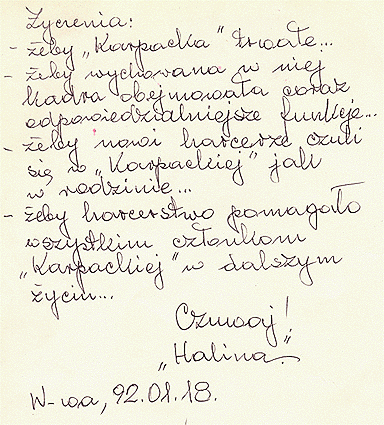 Życzenia:
- żeby „Karpacka" trwała...
- żeby wychowana w niej
kadra obejmowała coraz
odpowiedzialniejsze funkcje...
- żeby nowi harcerze czuli
się w „Karpackiej" jak
w rodzinie...
- żeby harcerstwo pomagało
wszystkim członkom
„Karpackiej" w dalszym
życiu...
Czuwaj!
„Halina"
W-wa, 92.01.18.